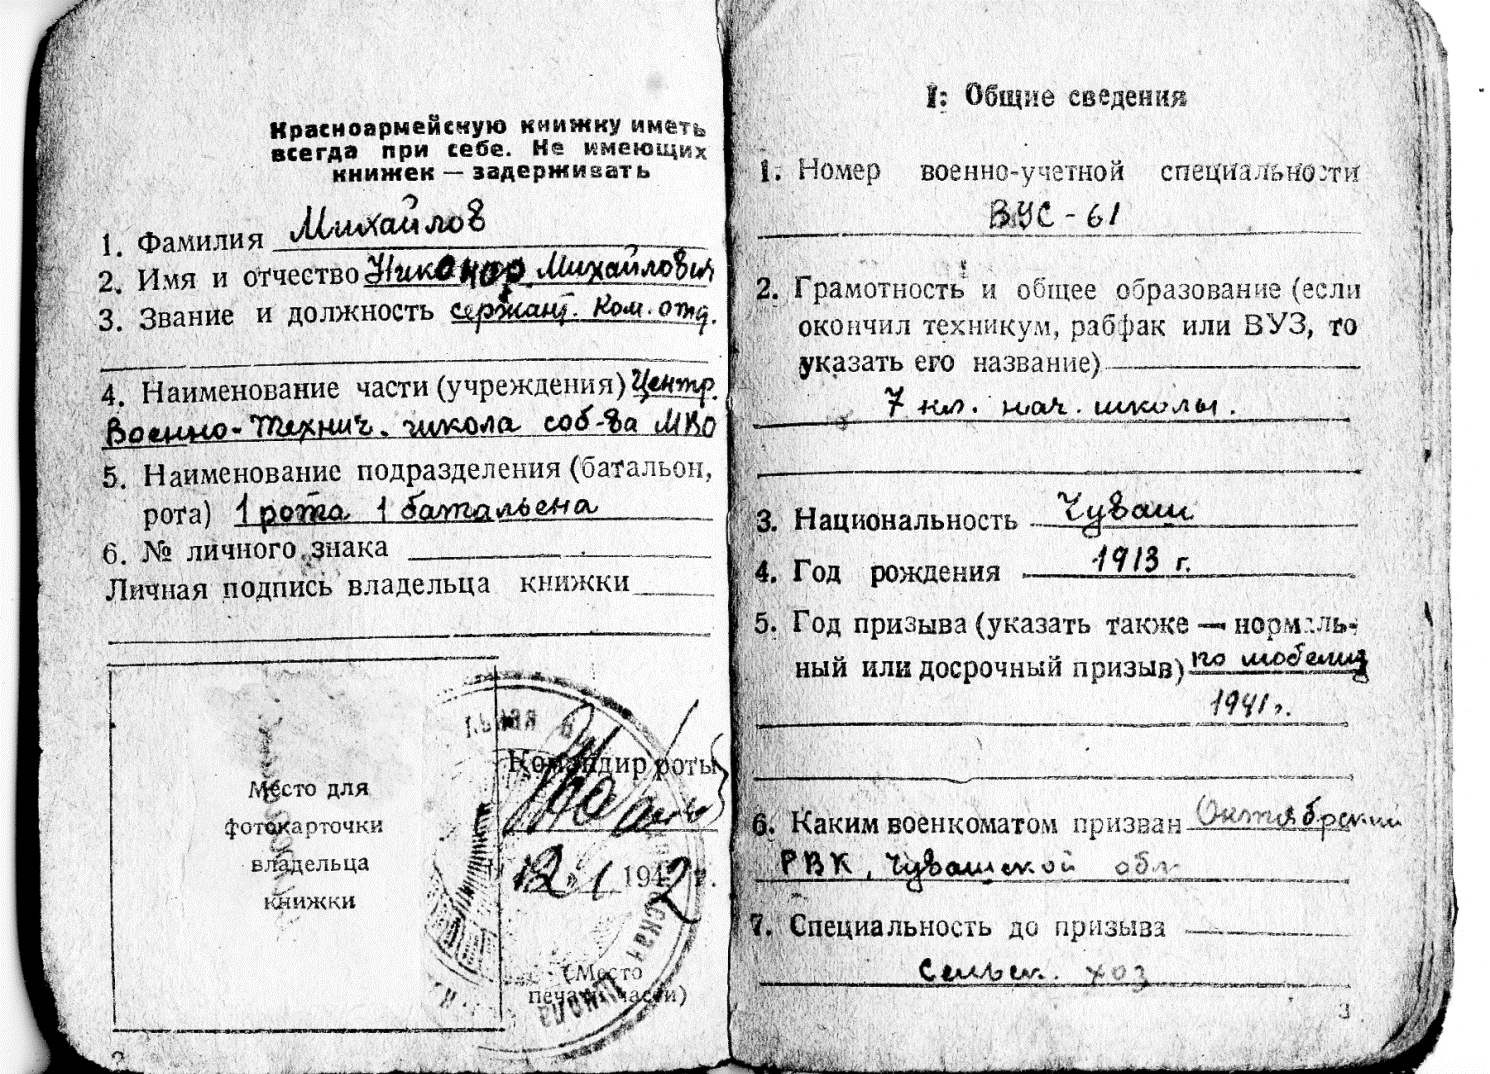 Красноармейскую книжку иметь
всегда при себе. Не имеющих
книжек — задерживать
1. Фамилия Михайлов
2. Имя и отчество Никонор Михайлович
3. Звание и должность сержант. Ком. отд.
4. Наименование части (учреждения) Центр.
Военно-Технич. школа соб-ва МВО
5. Наименование подразделения (батальон,
рота) 1 рота 1 батальена
6. № личного знака
Личная подпись владельца книжки
Место для
фотокарточки
владельца
книжки
Командир роты
12 1 1942 г.
(Место
печати части)
школа
2
I: Общие сведения
1. Номер военно-учетной специальности
ВУС - 61
2. Грамотность и общее образование (если
окончил техникум, рабфак или ВУЗ, то
указать его название)
7 кл. нач. школы.
3. Национальность Чуваш
4. Год рождения 1913 г.
5. Год призыва (указать также — нормаль-
ный или досрочный призыв) по мобелиз
1941 г.
6. Каким военкоматом призван Октябрьский
РВК, Чувашской обл
7. Специальность до призыва
Сельск. хоз
3